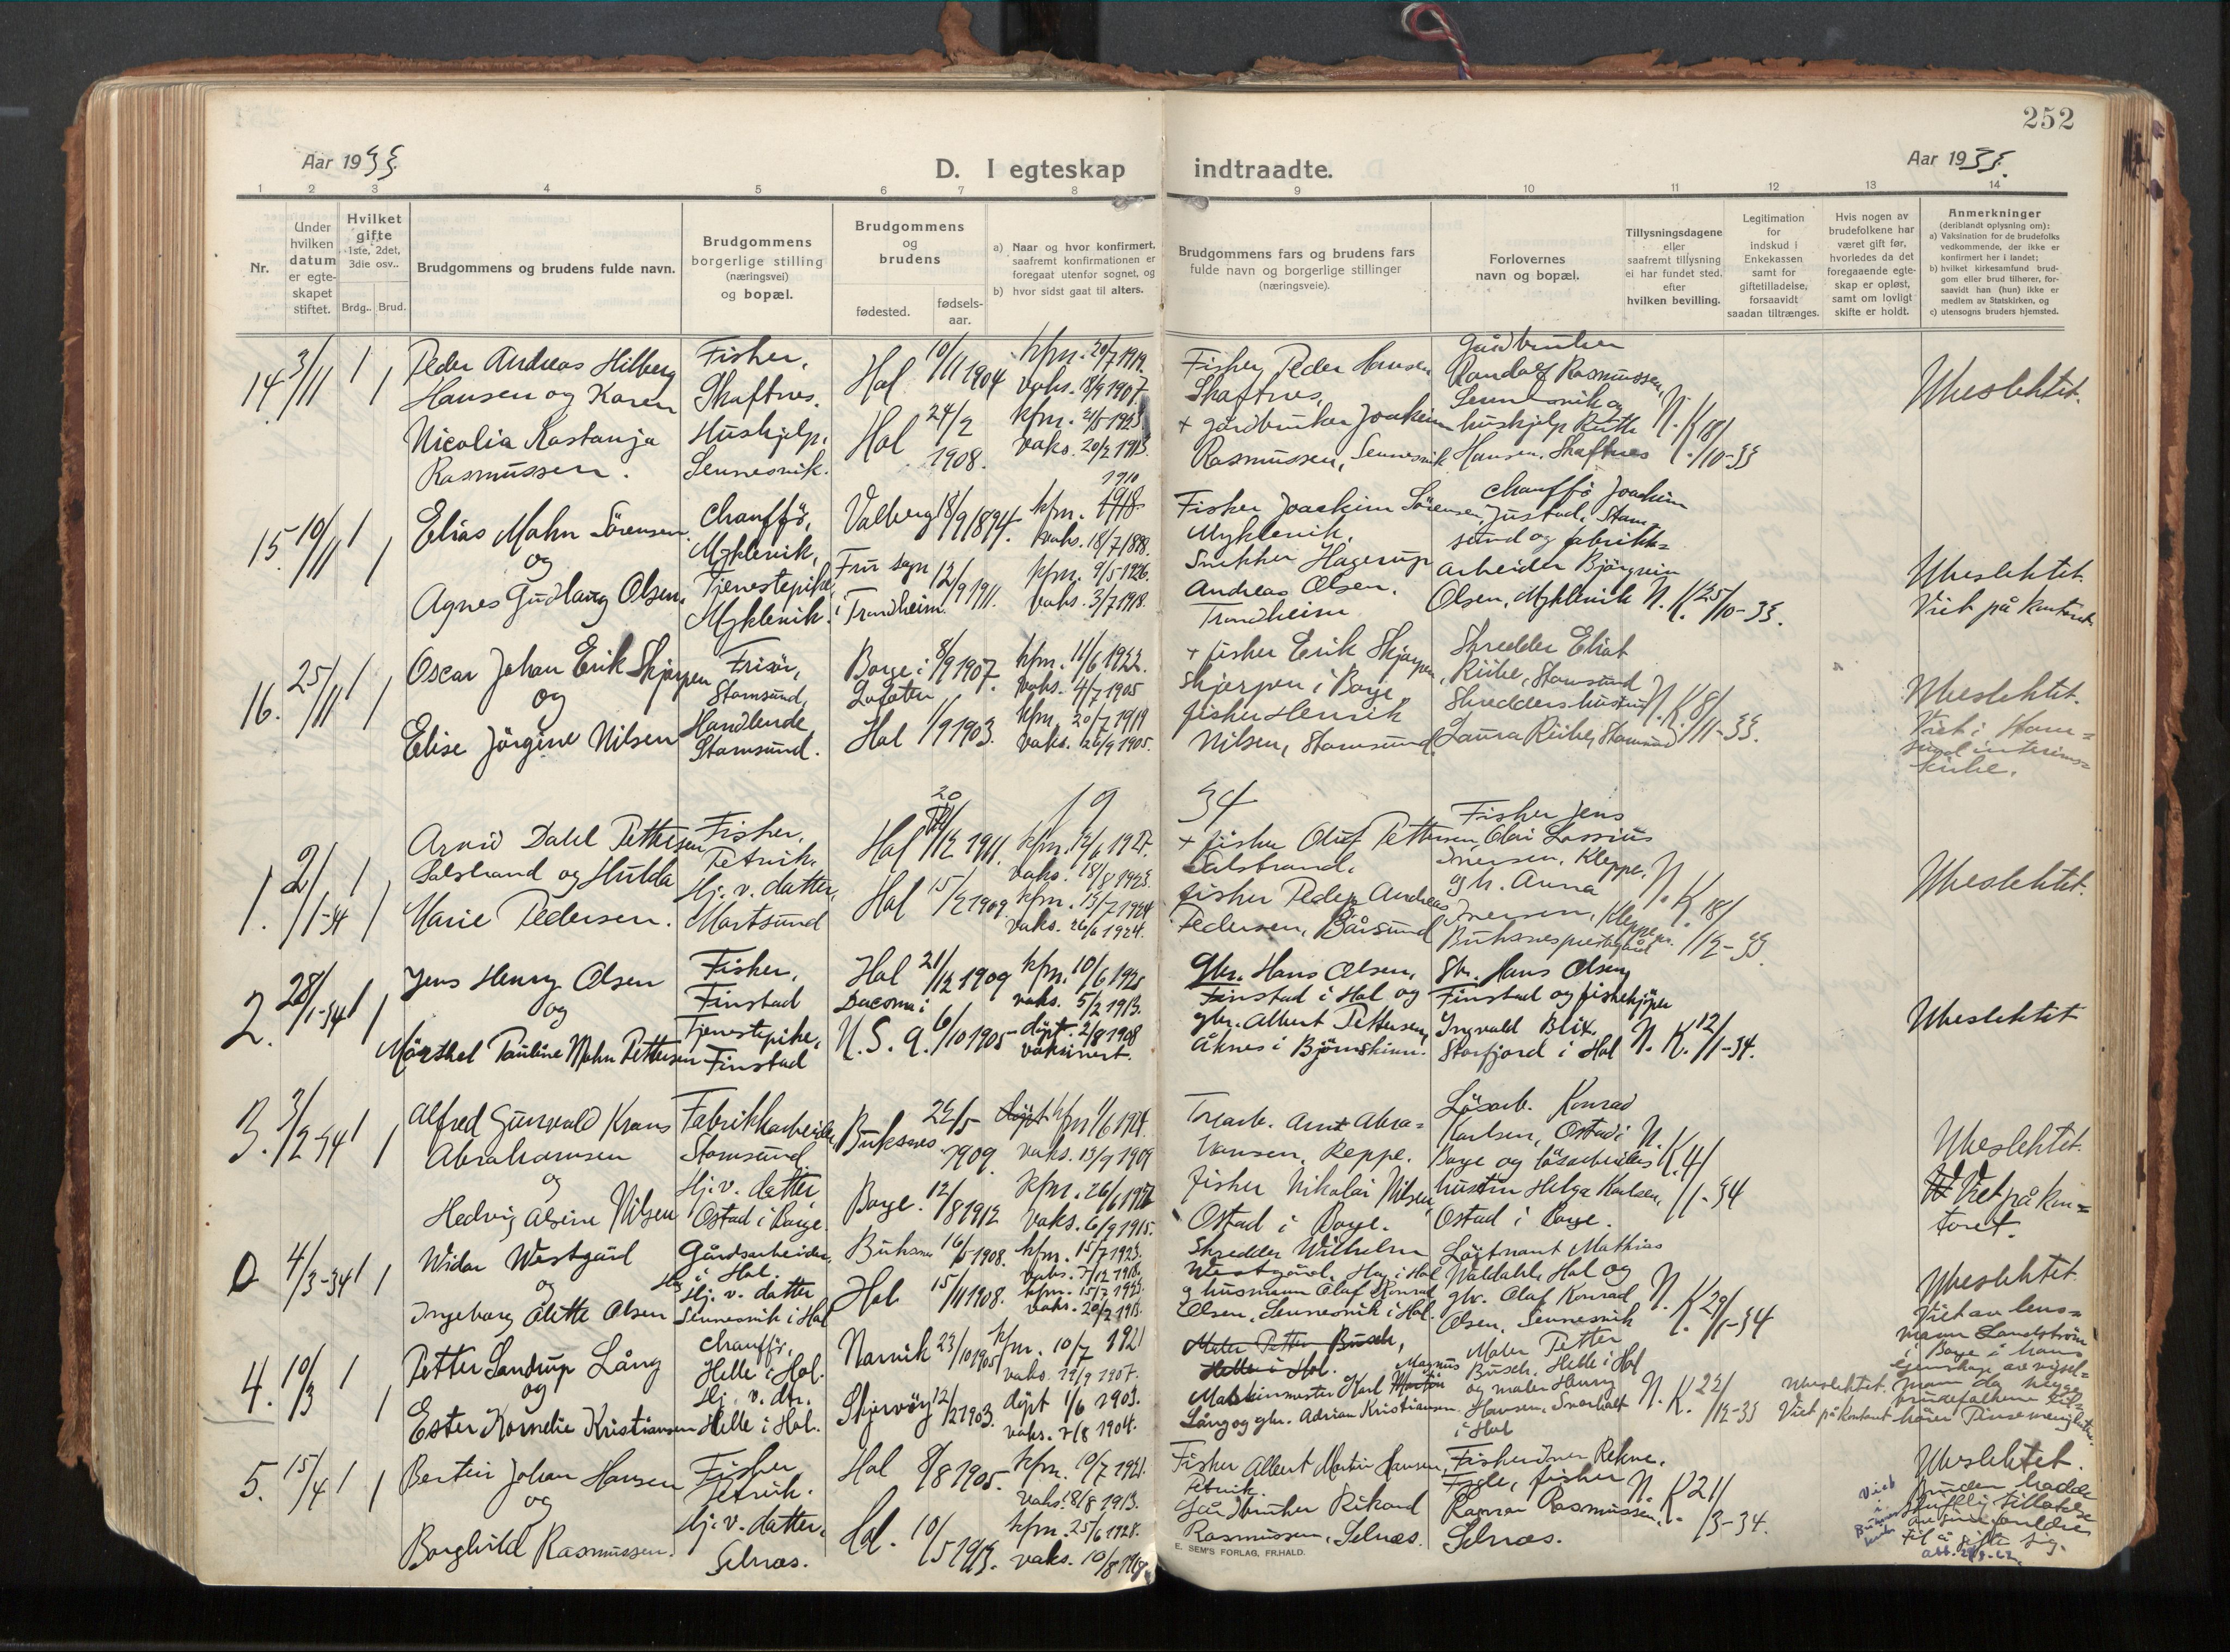 252
Aar 1933.
D. I egteskap indtraadte.
Aar 1933.
1 2 3 4 5 6 7 8 9 10 11 12 13 14
Nr.
Under
hvilken
datum
er egte-
skapet
stiftet.
Hvilket
gifte
1ste, 2det,
3die osv..
Brdg..
Brud.
Brudgommens og brudens fulde navn.
Brudgommens
borgerlige stilling
(næringsvei)
og bopæl.
Brudgommens
og
brudens
fødested.
fødsels-
aar.
a) Naar og hvor konfirmert,
saafremt konfirmationen er
foregaat utenfor sognet, og
b) hvor sidst gaat til alters.
Brudgommens fars og brudens fars
fulde navn og borgerlige stillinger
(næringsveie).
Forlovernes
navn og bopæl.
Tillysningsdagene
eller
saafremt tillysning
ei har fundet sted,
efter
hvilken bevilling.
Legitimation
for
indskud i
Enkekassen
samt for
giftetilladelse,
forsaavidt
saadan tiltrænges.
Hvis nogen av
brudefolkene har
været gift før,
hvorledes da det
foregaaende egte-
skap er opløst,
samt om lovligt
skifte er holdt.
Anmerkninger
(deriblandt oplysning om):
a) Vaksination for de brudefolks
vedkommende, der ikke er
konfirmert her i landet;
b) hvilket kirkesamfund brud-
gom eller brud tilhører, for-
saavidt han (hun) ikke er
medlem av Statskirken, og
c) utensogns bruders hjemsted.
14 3/11 1 1
Peder Andreas Hilberg
Hansen og Karen
Nicolia Kastanja
Rasmussen.
Fisker,
Skaftnes.
Hushjelp,
Sennesvik.
Hol 10/11 1904
Hol 24/2 1908.
kfm. 20/7 1919.
vaks. 18/9 1907.
kfm. 21/5 1923
vaks. 20/2 1913.
Fisker Peder Hansen
Skaftnes,
+ gårdbruker Joakim
Rasmussen, Sennesvik
Gårdbruker
Randolf Rasmussen,
Sennesvik og
hushjelp Ruth
Hansen, Skaftnes
N. K. 18/10-33
Ubeslektet.
15. 10/11 1 1
Elias Mohn Sörensen
og
Agnes Gudlaug Olsen.
Chauffö,
Myklevik,
Tjenestepike,
Myklevik.
Valberg 18/9 1894.
Frue sogn i
Trondheim 12/9 1911.
1910
kfm. 1918
vaks. 18/7 1898.
kfm. 9/5 1926.
vaks. 3/7 1918.
Fisker Joackim Sörensen
Myklevik.
Snekker Hagerup
Andreas Olsen,
Trondheim
Chauffö Joackim
Justad, Stam-
sund og fabrikk-
arbeider Björgvin
Olsen, Myklevik
N. K. 25/10-33.
Ubeslektet.
Viet på kontoret
16. 25/11 1 1
Oscar Johan Erik Skjerpen
og
Elise Jörgine Nilsen
Frisör,
Stamsund,
Handlende
Stamsund.
Borge i
Lofoten 8/9 1907.
Hol 1/9 1903.
kfm. 11/6 1922.
vaks. 4/7 1905
kfm. 20/7 1919
vaks. 26/9 1905.
+ fisker Erik Skjerpen
Skjerpen i Borge,
fisker Henrik
Nilsen, Stamsund
Skredder Eliat
Riibe, Stamsund
Skreddershustru
Laura Riibe, Stamsund
N. K. 8/11-33.
Ubeslektet.
Viet i Stam-
sund interims-
kirke.
19 34
1. 2/1-34 1 1
Arvid Dahl Pettersen
Salstrand og Hulda
Marie Pedersen.
Fisker,
Petvik.
Hj. v. datter,
Mortsund
Hol 20/12 1911.
Hol 15/2 1909
kfm. 12/6 1927.
vaks. 18/8 1923.
kfm. 13/7 1924
vaks. 26/6 1924.
+ fisker Oluf Pettersen
Salstrand.
fisker Peder Andreas
Pedersen, Bårsund
Fisker Jens
Olai Lassius
Iversen, Kleppe,
og h. Anna
Iversen, Kleppe pr.
Buksnesprestegård
N. K. 18/12-33.
Ubeslektet.
2. 28/1-34 1 1
Jens Henry Olsen
og
Mårthel Pauline Mohn Pettersen
Fisker,
Finstad
Tjenestepike,
Finstad
Hol 21/12 1909
Dacoma i
U.S.A. 6/10 1905
kfm. 10/6 1925
vaks. 5/2 1913.
döpt. 2/8 1908
vaksinert.
Gbr. Hans Olsen,
Finstad i Hol og
gbr. Albert Pettersen,
Åknes i Björnskinn.
Gbr. Hans Olsen,
Finstad og fiskekjöper
Ingvald Blix,
Storfjord i Hol
N. K. 12/1-34.
Ubeslektet
3. 3/2-34 1 1
Alfred Gunvald Krans
Abrahamsen
og
Hedvig Alsine Nilsen
Fabrikkarbeider
Stamsund
Hj. v. datter
Ostad i Borge.
Buksnes 22/5 1909.
Borge. 12/8 1912
kfm 1/6 1924.
vaks. 13/9 1909
kfm. 26/6 1926
vaks. 6/9 1915.
Trearb. Arnt Abra-
hamsen, Reppe.
fisker Nikolai Nilsen,
Ostad i Borge.
Lösarb. Konrad
Karlsen, Ostad i
Borge og lösarbeiders
hustru Helga Karlsen,
Ostad i Borge.
N. K. 4/1-34
Ubeslektet.
Viet på kon-
toret.
0 4/3-34 1 1
Widar Westgård
og
Ingeborg Olette Olsen
Gårdsarbeider,
Hag i Hol
Hj. v. datter
Sennesvik i Hol
Buksnes 16/5 1908.
Hol 15/11 1908.
kfm. 15/7 1923.
vaks. 7/12 1918.
kfm. 15/7 1923.
vaks. 20/2 1913.
Skredder Wilhelm
Westgård, Hag i Hol
og husmann Olaf Konrad
Olsen, Sennesvik i Hol.
Löjtnant Mathias
Waldahl, Hol og
gbr. Olaf Konrad
Olsen, Sennesvik
N. K. 29/1-34
Ubeslektet.
Viet av lens-
mann Sandström
i Borge i hans
egenskap av vigsel-
mann da begge
brudefolkene til-
hører Pinsemenigheten.
4. 10/3 1 1
Petter Sandrup Lång
og
Ester Kornelie Kristiansen
Chauffö,
Helle i Hol.
Hj. v. dtr.
Helle i Hol.
Narvik 23/10 1905
Skjervöy 12/2 1903.
kfm. 10/7 1921
vaks. 19/9 1907.
döpt 1/6 1903.
vaks. 7/8 1904.
Maler Petter Busch,
Helle i Hol.
Maskinmester Karl Magnus
Lång og gbr. Adrian Kristiansen
Maler Petter
Busch, Helle i Hol
og maler Henry
Hansen, Svarholt
i Hol
N. K. 22/12-33
Ubeslektet.
Viet på kontoret
5. 15/4 1 1
Bertin Johan Hansen
og
Borghild Rasmussen.
Fisker
Petvik.
Hj. v. datter,
Selnæs.
Hol 8/8 1905.
Hol. 10/5 1913.
kfm. 10/7 1921.
vaks. 8/8 1913.
kfm. 25/6 1928.
vaks. 10/8 1918.
Fisker Albert Martin Hansen,
Petvik.
Gårdbruker Rikard
Rasmussen, Selnæs.
Fisker Iver Rekve,
Fygle, fisker
Ragnar Rasmussen,
Selnæs.
N. K. 21/3-34.
Ubeslektet.
Bruden hadde
skriftlig tillatelse
av sine foreldre
til å gifte sig.
Viet
i
Buksnes
kirke
E. SEM'S FORLAG, FR.HALD.